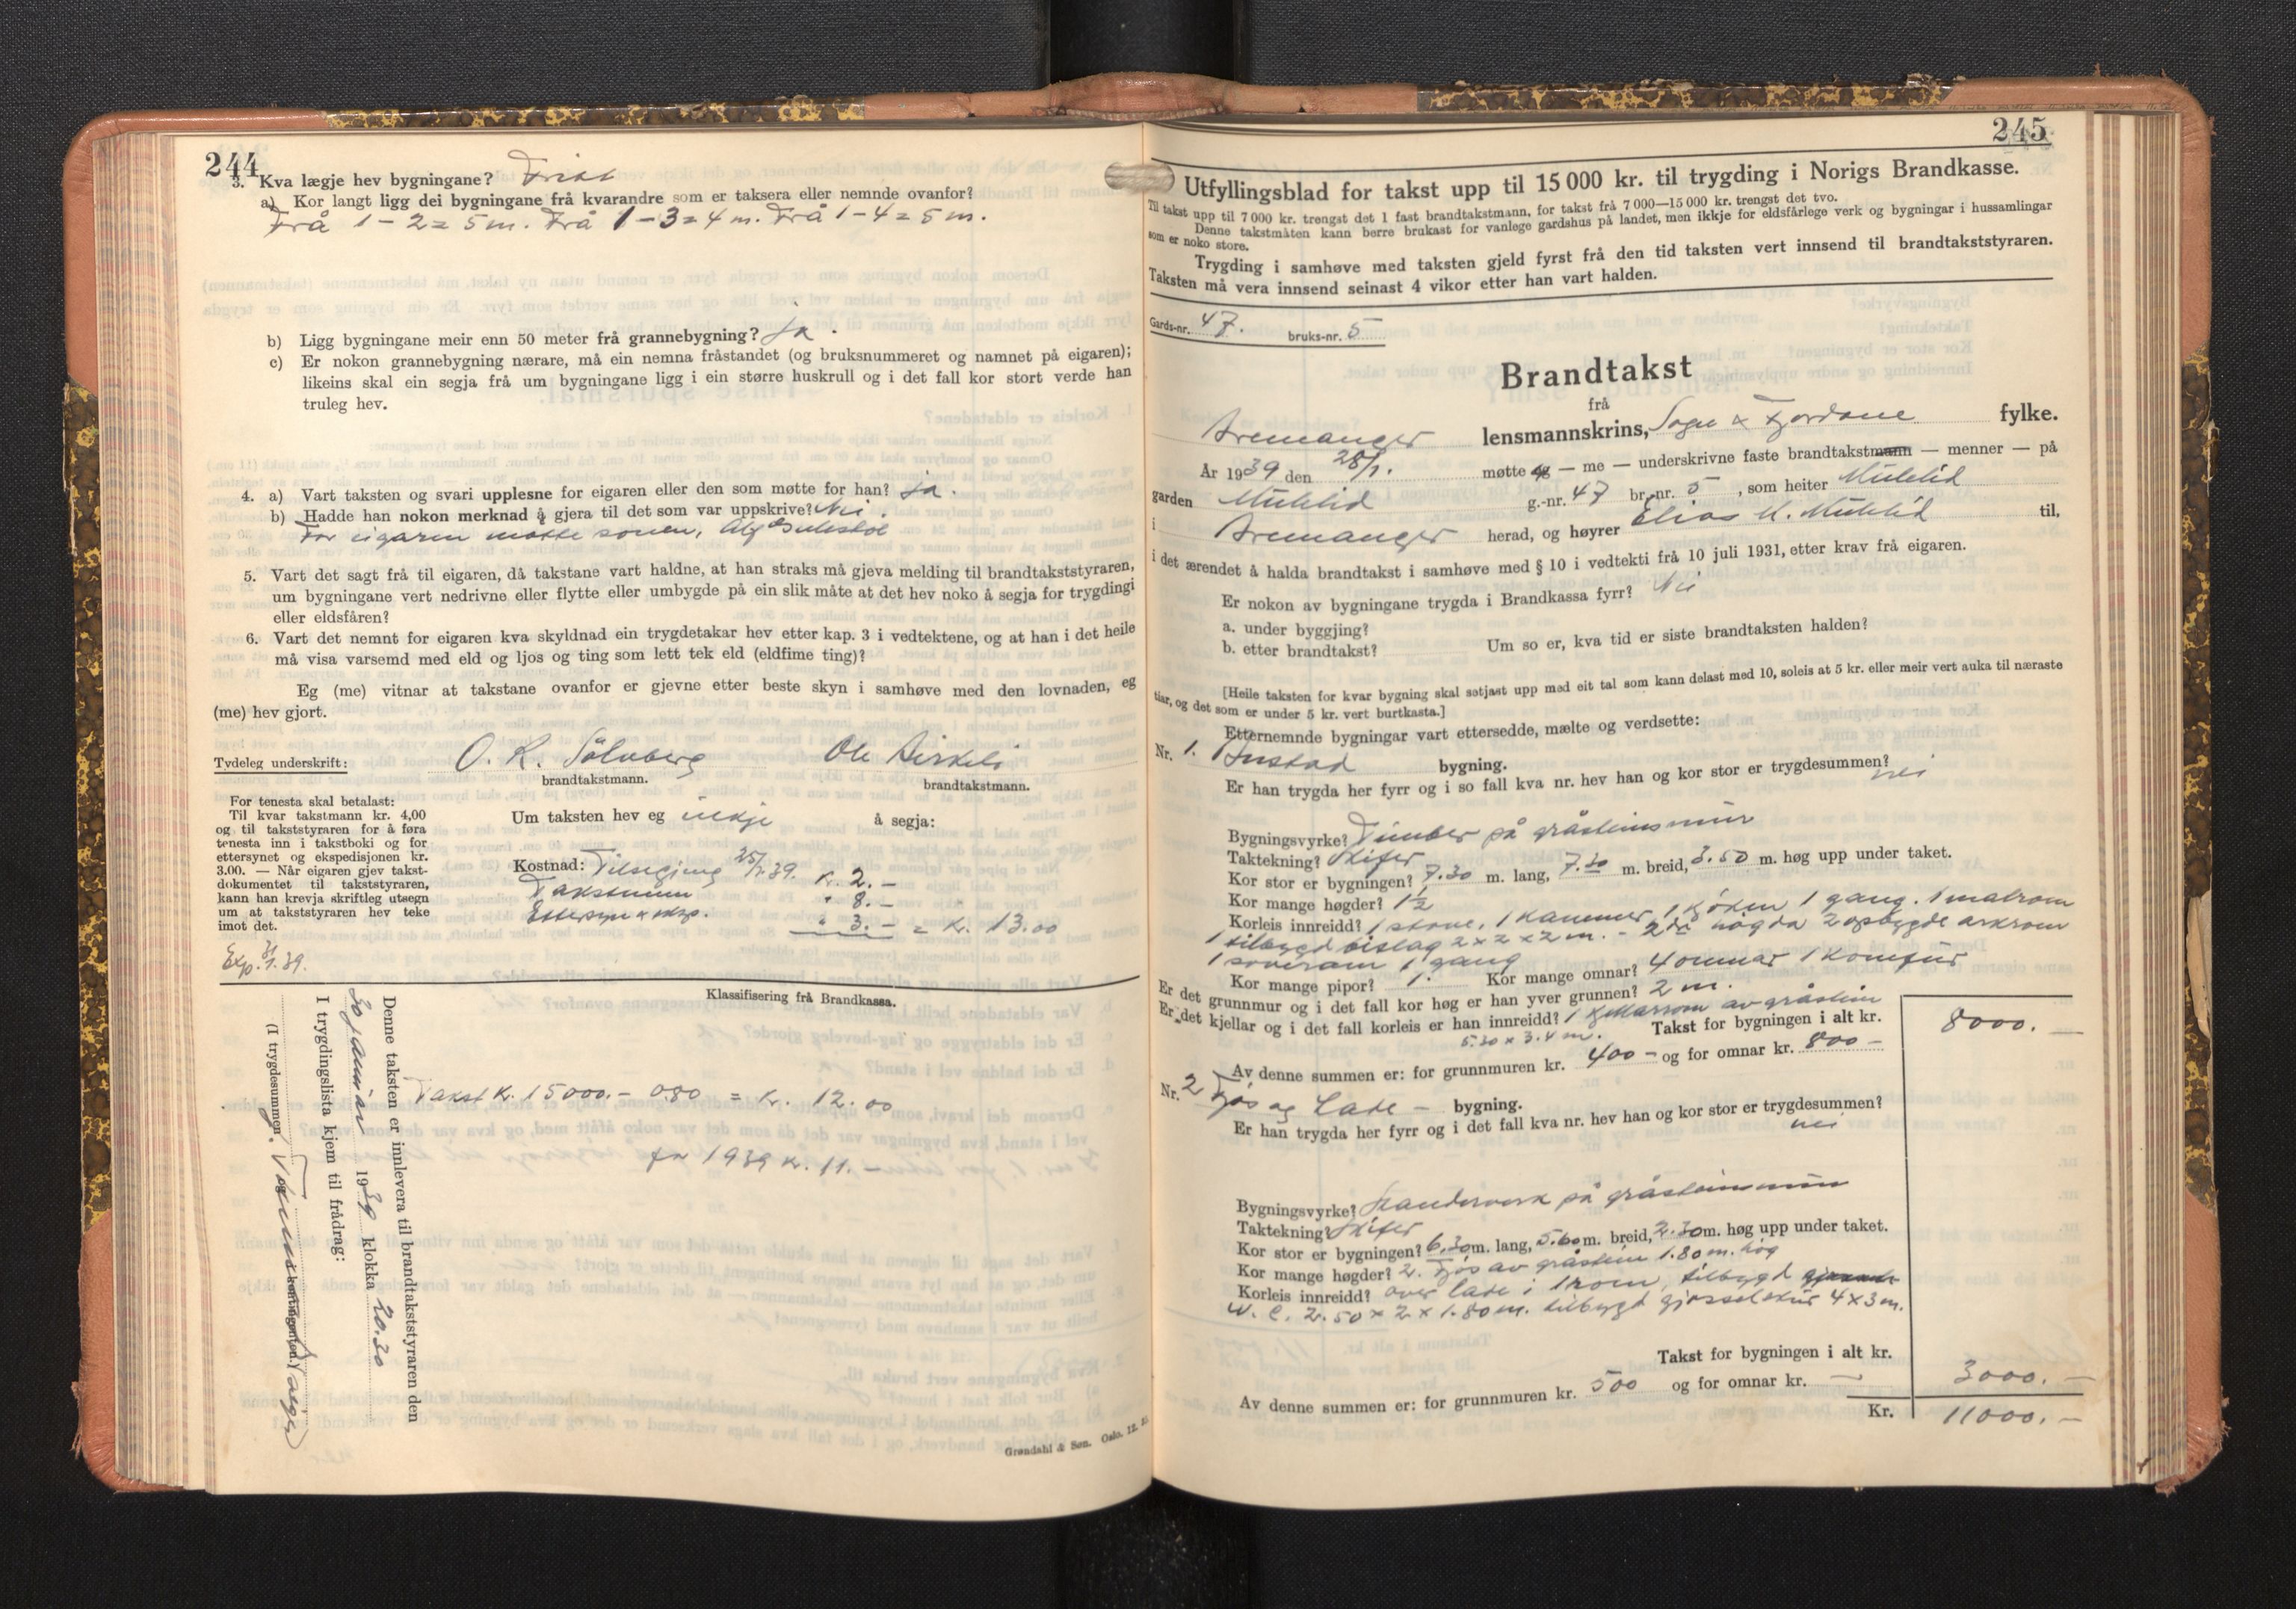 244
3. Kva lægje hev bygningane? Frial
a) Kor langt ligg dei bygningane frå kvarandre som er taksera eller nemnde ovanfor?
Frå 1-2 = 5 m. Frå 1-3 = 4 m. Frå 1-4 = 5 m.
b) Ligg bygningane meir enn 50 meter frå grannebygning? Ja.
c) Er nokon grannebygning nærare, må ein nemna fråstandet (og bruksnummeret og namnet på eigaren);
likeins skal ein segja frå um bygningane ligg i ein større huskrull og i det fall kor stort verde han
truleg hev.
4. a) Vart taksten og svari upplesne for eigaren eller den som møtte for han? Ja.
b) Hadde han nokon merknad å gjera til det som var uppskrive? Nei.
For eigaren møtte sonen,
5. Vart det sagt frå til eigaren, då takstane vart haldne, at han straks må gjeva melding til brandtakststyraren,
um bygningane vert nedrivne eller flytte eller umbygde på ein slik måte at det hev noko å segja for trygdingi
eller eldsfåren?
6. Vart det nemnt for eigaren kva skyldnad ein trygdetakar hev etter kap. 3 i vedtektene, og at han i det heile
må visa varsemd med eld og ljos og ting som lett tek eld (eldfime ting)?
Eg (me) vitnar at takstane ovanfor er gjevne etter beste skyn i samhøve med den lovnaden, eg
(me) hev gjort.
Tydeleg underskrift: O. K. Sölvberg Ole Birkeli
brandtakstmann. brandtakstmann.
For tenesta skal betalast:
Til kvar takstmann kr. 4,00
og til takststyraren for å føra
tenesta inn i takstboki og for
ettersynet og ekspedisjonen kr.
3.00. — Når eigaren gjev takst-
dokumentet til takststyraren,
kann han krevja skriftleg utsegn
um at takststyraren hev teke
imot det.
Um taksten hev eg inkje å segja:
Kostnad: Tilsegjing 25/1.39. Kr. 2.-
Takstmenn " 8.-
Ettersyn & eksp. " 3.- = Kr. 13.00
Exp. 31/1.39.
Klassifisering frå Brandkassa.
Takst Kr. 15000.- 0.80 = Kr. 12.00
for 1939 Kr. 11.-
Denne taksten er innlevera til brandtakststyraren den
30 januar 1939 klokka 20.30
I trygdingslista kjem til frådrag:
(I trygdesummen og kontingenten.)
Grøndahl & Søn. Oslo. 12.
245
Utfyllingsblad for takst upp til 15 000 kr. til trygding i Norigs Brandkasse.
Til takst upp til 7 000 kr. trengst det 1 fast brandtakstmann, for takst frå 7 000—15 000 kr. trengst det tvo.
Denne takstmåten kann berre brukast for vanlege gardshus på landet, men ikkje for eldsfårlege verk og bygningar i hussamlingar
som er noko store.
Trygding i samhøve med taksten gjeld fyrst frå den tid taksten vert innsend til brandtakststyraren.
Taksten må vera innsend seinast 4 vikor etter han vart halden.
Gards-nr. 47. bruks-nr. 5
Brandtakst
frå
Bremanger lensmannskrins, Sogn & Fjordane fylke.
År 1939 den 28/1. møtte eg — me — underskrivne faste brandtakstmann — menner — på
garden Myklid g.-nr. 47 br.-nr. 5, som heiter Myklid
i Bremanger herad, og høyrer Elias M. Myklid til,
i det ærendet å halda brandtakst i samhøve med § 10 i vedtekti frå 10 juli 1931, etter krav frå eigaren.
Er nokon av bygningane trygda i Brandkassa fyrr? Nei
a. under byggjing?
b. etter brandtakst? Um so er, kva tid er siste brandtaksten halden?
[Heile taksten for kvar bygning skal setjast upp med eit tal som kann delast med 10, soleis at 5 kr. eller meir vert auka til næraste
tiar, og det som er under 5 kr. vert burtkasta.]
Etternemnde bygningar vart ettersedde, mælte og verdsette:
Nr. 1. Bustad bygning.
Er han trygda her fyrr og i so fall kva nr. hev han og kor stor er trygdesummen? nei
Bygningsvyrke? Timber på gråsteinsmur
Taktekning? Skifer
Kor stor er bygningen? 7.30 m. lang, 7.30 m. breid, 3.50 m. høg upp under taket.
Kor mange høgder? 1½
Korleis innreidd? 1 stove, 1 kammer, 1 kjøken 1 gang. 1 matrom
1 tilbygd bislag 2 x 2 x 2 m. - 2dre høgda 2 opbygde arkrom
1 soverom 1 gang
Kor mange pipor? 1. Kor mange omnar? 4 omnar 1 komfur
Er det grunnmur og i det fall kor høg er han yver grunnen? 2 m.
Er det kjellar og i det fall korleis er han innreidd? 1 kjellarrom av gråstein
5.30 x 3.4 m. Takst for bygningen i alt kr. 8000.—
Av denne summen er: for grunnmuren kr. 400- og for omnar kr. 800-
Nr. 2 Fjøs og Løde - bygning.
Er han trygda her fyrr og i det fall kva nr. hev han og kor stor er trygdesummen?
nei
Bygningsvyrke? Standerverk på gråsteinsmur
Taktekning? Skifer
Kor stor er bygningen? 6.30 m. lang, 5.60 m. breid, 2.30 m. høg upp under taket.
Kor mange høgder? 2. Fjøs av gråstein 1.80 m. høg
Korleis innreidd? over løde i 1 rom, tilbygd
W. C. 2.50 x 2 x 1.80 m. tilbygt gjødselskur 4 x 3 m.
Takst for bygningen i alt kr. 3000.—
Av denne summen er: for grunnmuren kr. 500 og for omnar kr. —
Kr. 11000.—